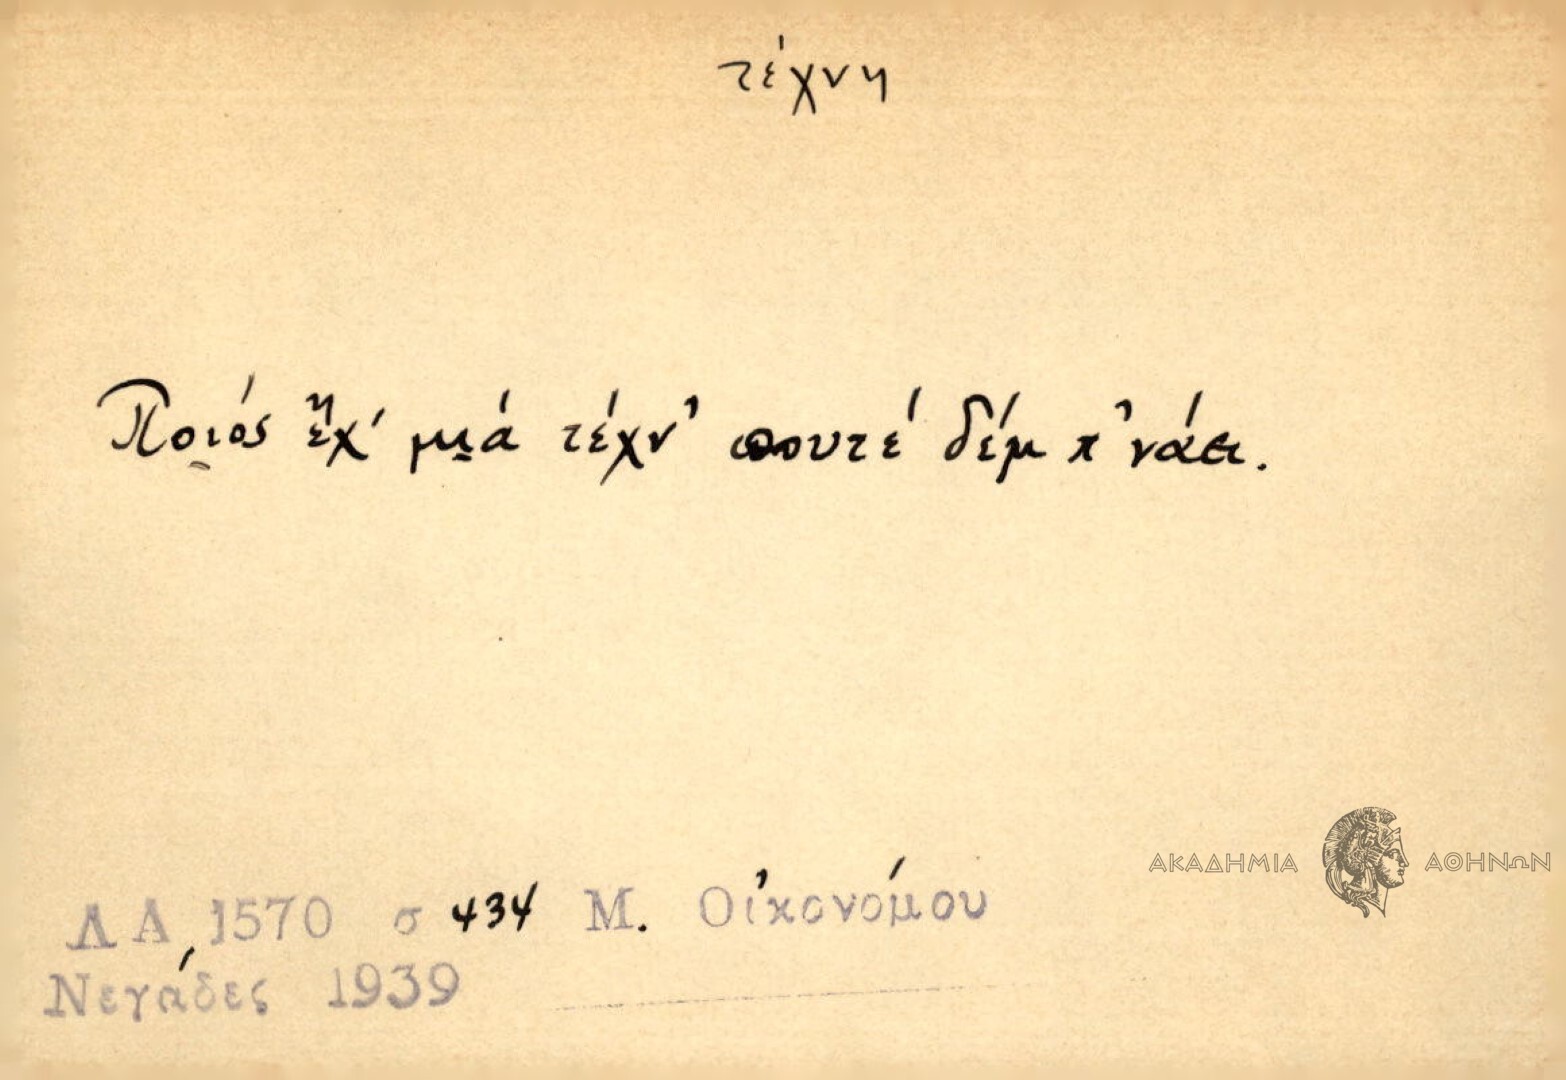 τέχνη
Ποιός ἔχ' μιά τέχν' πουτέ δέμ π'νάει.
ΑΚΑΔΗΜΙΑ ΑΘΗΝΩΝ
ΛΑ 1570 σ 434 Μ. Οἰκονόμου
Νεγάδες 1939